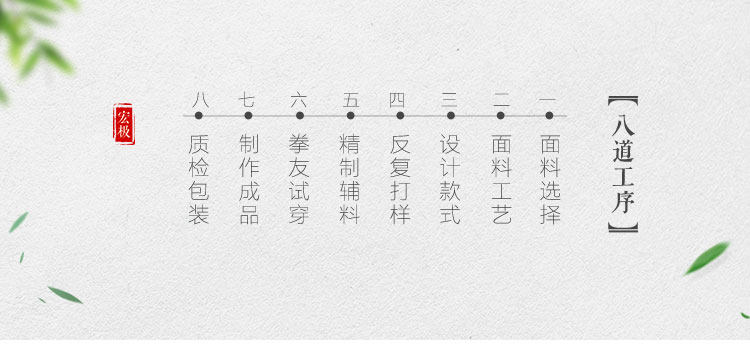 【八道工序】
一
面料选择
二
面料工艺
三
设计款式
四
反复打样
五
精制辅料
六
拳友试穿
七
制作成品
八
质检包装
宏极